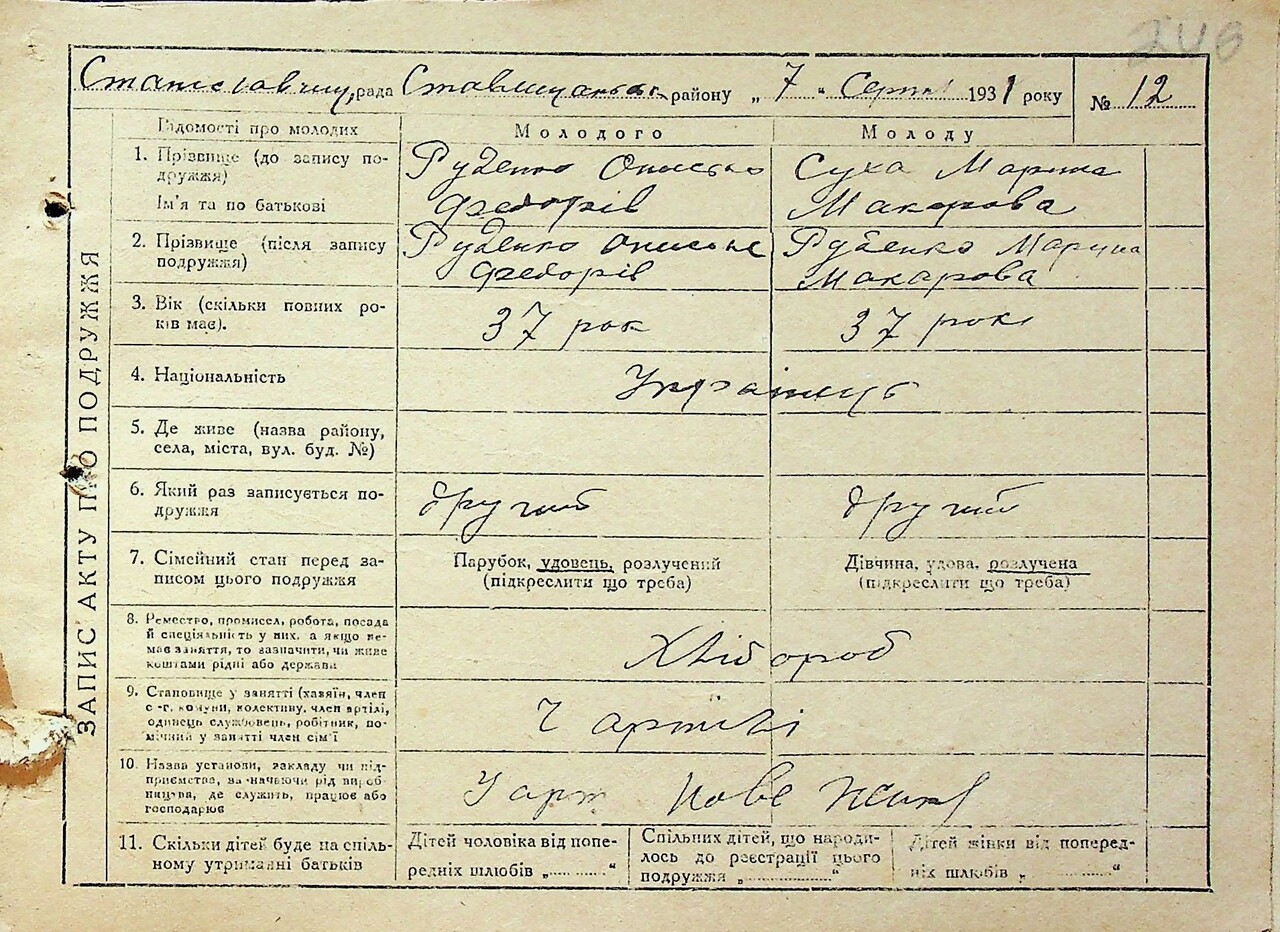 240
Станіславчи, рада Ставищансько району „ 7 “ Серпня 1931 року № 12
ЗАПИС АКТУ ПРО ПОДРУЖЖЯ
Відомості про молодих Молодого Молоду
1. Прізвище (до запису по-
дружжя)
Ім'я та по батькові
Руденко Онисько
Федорів
Суха Марина
Макарова
2. Прізвище (після запису
подружжя)
Руденко Онисько
Федорів
Руденко Марина
Макарова
3. Вік (скільки повних ро-
ків має).
37 рок
37 рокі
4. Національність
Українець
5. Де живе (назва району,
села, міста, вул. буд. №)
6. Який раз записується по-
дружжя
другий
другий
7. Сімейний стан перед за-
писом цього подружжя
Парубок, удовець, розлучений
(підкреслити що треба)
Дівчина, удова, розлучена
(підкреслити що треба)
8. Ремество, промисел, робота, посада
й спеціяльність у них, а якщо не-
має заняття, то зазначити, чи живе
коштами рідні або держави
Хлібороб
9. Становище у занятті (хазяїн, член
с.-г. комуни, колективу, член артілі,
одинець службовець, робітник, по-
мічний у занятті член сім'ї
Ч артілі
10. Назва установи, закладу чи під-
приємства, зазначаючи рід вироб-
ництва, де служить, працює або
господарює
У арт Нове
11. Скільки дітей буде на спіль-
ному утриманні батьків
Дітей чоловіка від попе-
редніх шлюбів „..........“
Спільних дітей, що народи-
лось до реєстрації цього
подружжя „..........“
Дітей жінки від поперед-
ніх шлюбів „..........“